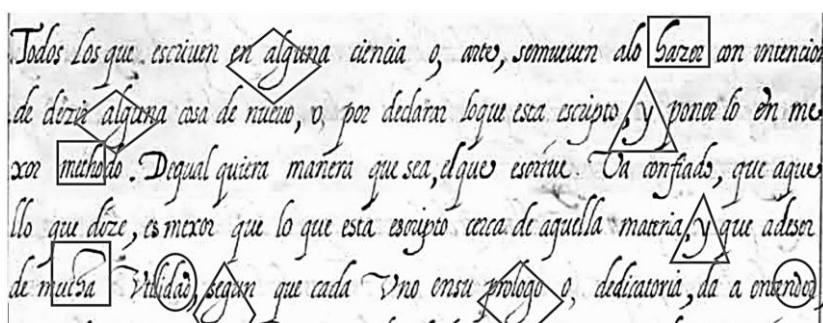 Todos los que escriuen en alguna ciencia o, arte, semueuen alo hazer con intencion
de dezir alguna cosa de nueuo, o, por declarar loque esta escripto, y poner lo en me
xor methodo. Dequal quiera manera que sea, elque escriue. Va confiado, que aque
llo que dize, es mexor que lo que esta escripto cerca de aquella materia, y que a deser
de mucha Vtilidad, segun que cada Vno ensu prologo o, dedicatoria, da a entender,